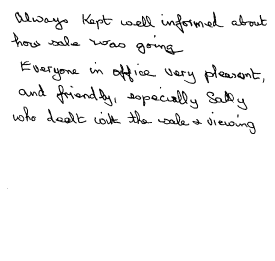 Always kept well informed about
how sale was going
Everyone in office very pleasant,
and friendly, especially Sally
who dealt with the sale & viewing